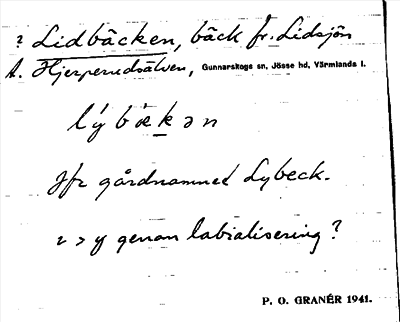 ? Lidbäcken, bäck fr. Lidsjön
t. Hjerperudsälven, Gunnarskogs sn, Jösse hd, Värmlands l.
lýbækən
Jfr gårdnamnet Lybeck.
i > y genom labialisering?
P. O. GRANÉR 1941.